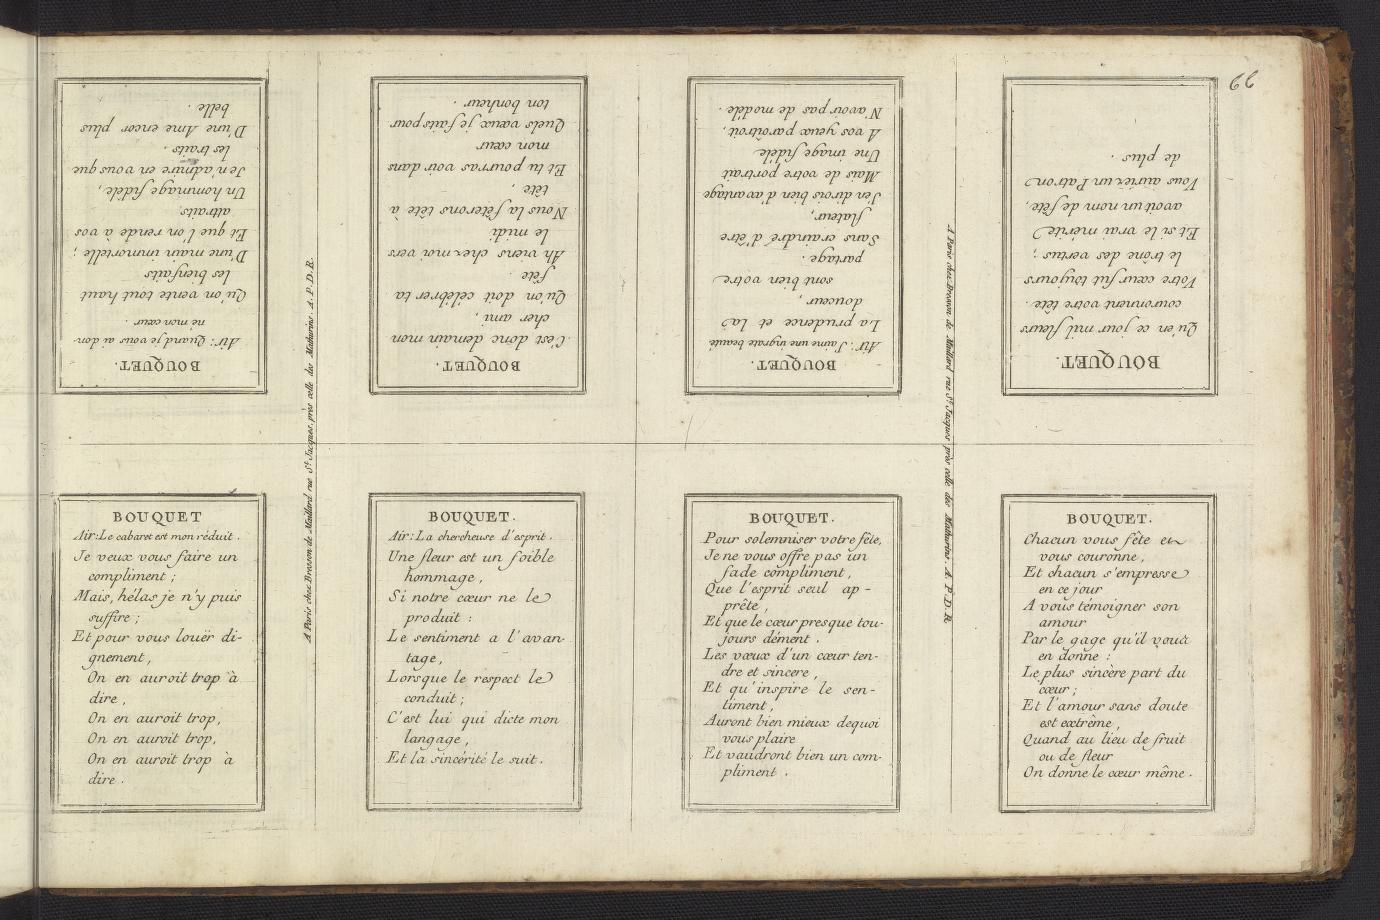 66
BOUQUET.
Air: Quand je vous ai don-
né mon cœur.
Qu'on vente tout haut
les bienfaits
D'une main immortelle;
Et que l'on rende à vos
attraits,
Un hommage fidéle,
Je n'admire en vous que
les traits.
D'une Ame encor plus
belle.
BOUQUET.
C'est donc demain mon
cher ami,
Qu'on doit célébrer ta
fête.
Ah viens chez moi vers
le midi
Nous la fêterons tête à
tête,
Et tu pourras voir dans
mon cœur
Quels vœux je faits pour
ton bonheur.
BOUQUET.
Air: J'aime une ingrate beauté
La prudence et la
douceur,
sont bien votre
partage.
Sans craindre d'être
flateur,
J'en dirois bien d'avantage
Mais de votre portrait
Une image fidéle
A vos yeux paroîtroit,
N'avoir pas de modéle.
BOUQUET.
Qu'en ce jour mil fleurs
couronnent votre tête.
Votre cœur fut toujours
le trône des vertus;
Et si le vrai mérite
avoit un nom de fête,
Vous auriez un Patron
de plus.
A Paris chez Bresson de Maillard rue St. Jacques près celle des Mathurins. A.P.D.R.
A Paris chez Bresson de Maillard rue St. Jacques près celle des Mathurins. A.P.D.R.
BOUQUET
Air: Le cabaret est mon réduit.
Je veux vous faire un
compliment;
Mais, hélas je n'y puis
suffire;
Et pour vous louër di-
gnement,
On en auroit trop à
dire,
On en auroit trop,
On en auroit trop,
On en auroit trop à
dire.
BOUQUET.
Air: La chercheuse d'esprit.
Une fleur est un foible
hommage,
Si notre cœur ne le
produit:
Le sentiment a l'avan-
tage,
Lorsque le respect le
conduit;
C'est lui qui dicte mon
langage,
Et la sincérité le suit.
BOUQUET.
Pour solemniser votre fête,
Je ne vous offre pas un
fade compliment,
Que l'esprit seul ap-
prête,
Et que le cœur presque tou-
jours dément.
Les vœux d'un cœur ten-
dre et sincere,
Et qu'inspire le sen-
timent,
Auront bien mieux dequoi
vous plaire
Et vaudront bien un com-
pliment.
BOUQUET.
Chacun vous fête en
vous couronne,
Et chacun s'empresse
en ce jour
A vous témoigner son
amour
Par le gage qu'il vous
en donne:
Le plus sincère part du
cœur;
Et l'amour sans doute
est extrême,
Quand au lieu de fruit
ou de fleur
On donne le cœur même.